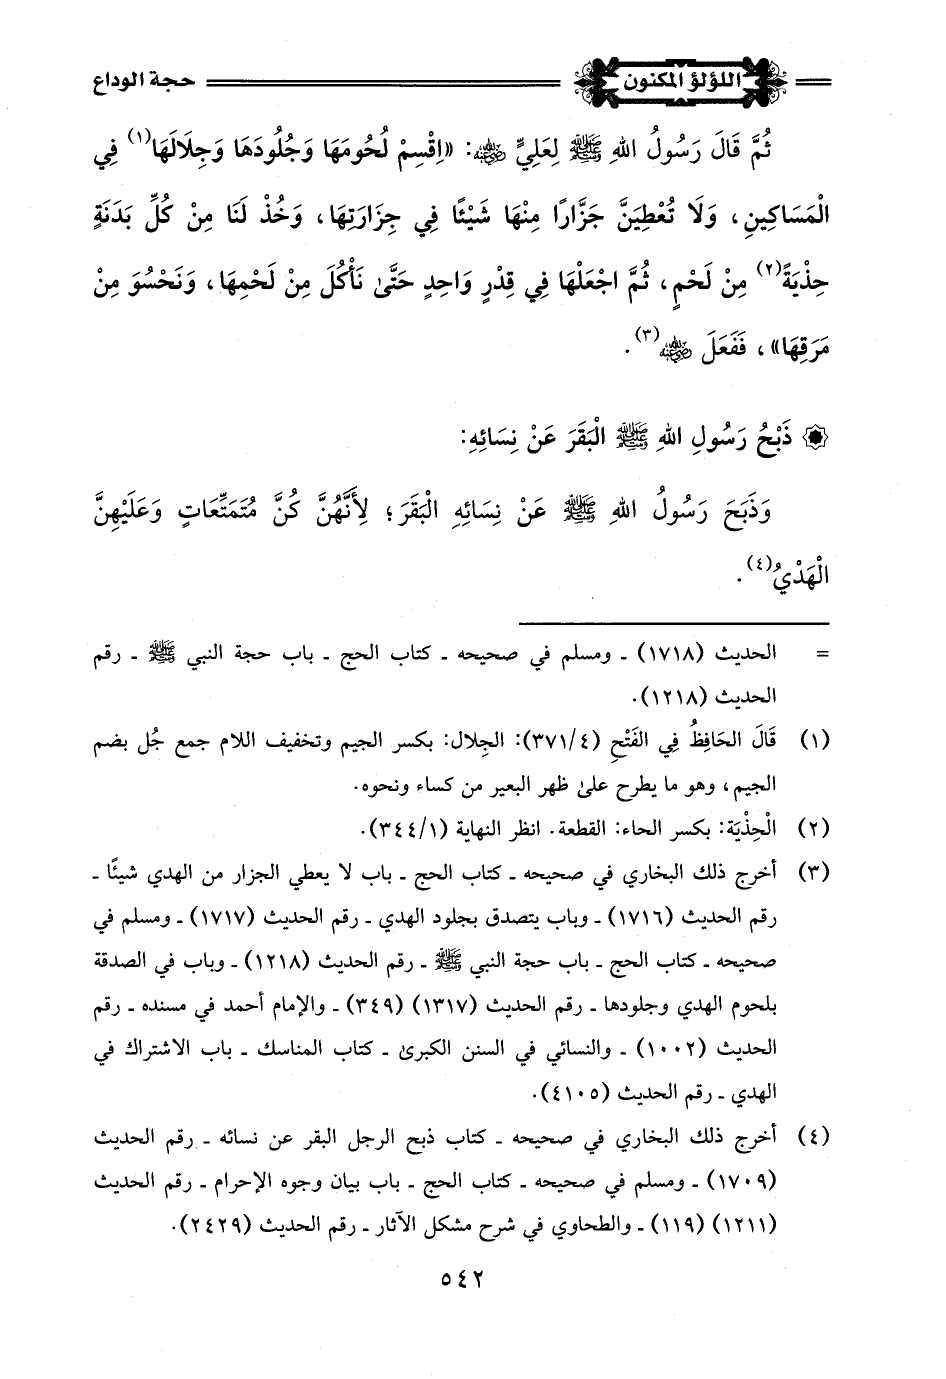 اللؤلؤ المكنون حجة الوداع
ثُمَّ قَالَ رَسُولُ اللهِ ﷺ لِعَلِيٍّ رضي الله عنه: «اِقْسِمْ لُحُومَهَا وَجُلُودَهَا وَجِلَالَهَا(١) فِي
الْمَسَاكِينِ، وَلَا تُعْطِيَنَّ جَزَّارًا مِنْهَا شَيْئًا فِي جِزَارَتِهَا، وَخُذْ لَنَا مِنْ كُلِّ بَدَنَةٍ
حِذْيَةً(٢) مِنْ لَحْمٍ، ثُمَّ اجْعَلْهَا فِي قِدْرٍ وَاحِدٍ حَتَّىٰ نَأْكُلَ مِنْ لَحْمِهَا، وَنَحْسُوَ مِنْ
مَرَقِهَا»، فَفَعَلَ رضي الله عنه(٣).
ذَبْحُ رَسُولِ اللهِ ﷺ الْبَقَرَ عَنْ نِسَائِهِ:
وَذَبَحَ رَسُولُ اللهِ ﷺ عَنْ نِسَائِهِ الْبَقَرَ؛ لِأَنَّهُنَّ كُنَّ مُتَمَتِّعَاتٍ وَعَلَيْهِنَّ
الْهَدْيُ(٤).
= الحديث (١٧١٨) ـ ومسلم في صحيحه ـ كتاب الحج ـ باب حجة النبي ﷺ ـ رقم
الحديث (١٢١٨).
(١) قَالَ الحَافِظُ فِي الفَتْحِ (٣٧١/٤): الجِلال: بكسر الجيم وتخفيف اللام جمع جُل بضم
الجيم، وهو ما يطرح علىٰ ظهر البعير من كساء ونحوه.
(٢) الْحِذْيَة: بكسر الحاء: القطعة. انظر النهاية (٣٤٤/١).
(٣) أخرج ذلك البخاري في صحيحه ـ كتاب الحج ـ باب لا يعطي الجزار من الهدي شيئًا ـ
رقم الحديث (١٧١٦) ـ وباب يتصدق بجلود الهدي ـ رقم الحديث (١٧١٧) ـ ومسلم في
صحيحه ـ كتاب الحج ـ باب حجة النبي ﷺ ـ رقم الحديث (١٢١٨) ـ وباب في الصدقة
بلحوم الهدي وجلودها ـ رقم الحديث (١٣١٧) (٣٤٩) ـ والإمام أحمد في مسنده ـ رقم
الحديث (١٠٠٢) ـ والنسائي في السنن الكبرىٰ ـ كتاب المناسك ـ باب الاشتراك في
الهدي ـ رقم الحديث (٤١٠٥).
(٤) أخرج ذلك البخاري في صحيحه ـ كتاب ذبح الرجل البقر عن نسائه ـ رقم الحديث
(١٧٠٩) ـ ومسلم في صحيحه ـ كتاب الحج ـ باب بيان وجوه الإحرام ـ رقم الحديث
(١٢١١) (١١٩) ـ والطحاوي في شرح مشكل الآثار ـ رقم الحديث (٢٤٢٩).
٥٤٢